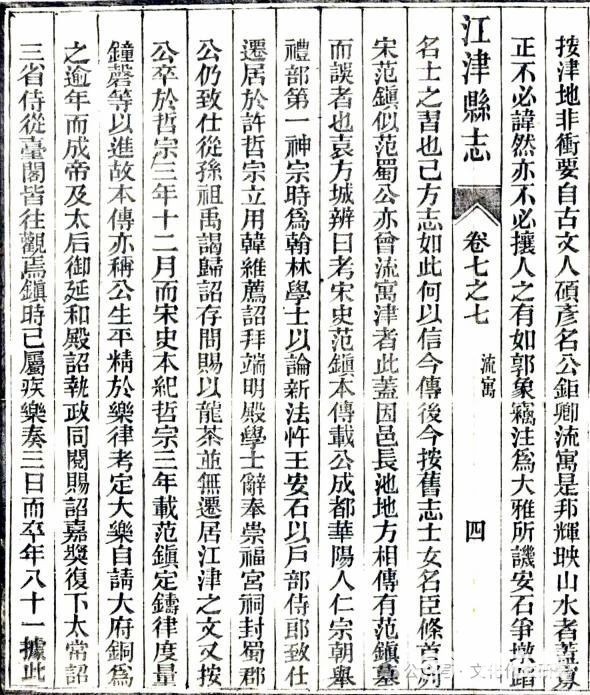 按津地非衝要自古文人碩彥名公鉅卿流寓是邦輝映山水者蓋寡
正不必諱然亦不必攘人之有如郭象竊注爲大雅所譏安石爭墩蹈
江津縣志 卷七之七 流寓 四
名士之習也己方志如此何以信今傳後今按舊志士女名臣條首列
宋范鎮似范蜀公亦曾流寓津者此蓋因邑長池地方相傳有范鎮墓
而誤者也袁方城辨曰考宋史范鎮本傳載公成都華陽人仁宗朝舉
禮部第一神宗時爲翰林學士以論新法忤王安石以戸部侍郎致仕
遷居於許哲宗立用韓維薦詔拜端明殿學士辭奉崇福宮祠封蜀郡
公仍致仕從孫祖禹謁歸詔存問賜以龍茶並無遷居江津之文又按
公卒於哲宗三年十二月而宋史本紀哲宗三年載范鎮定鑄律度量
鐘磬等以進故本傳亦稱公生平精於樂律考定大樂自請大府銅爲
之逾年而成帝及太后御延和殿詔執政同閱賜詔嘉獎復下太常詔
三省侍從臺閣皆往觀焉鎮時已屬疾樂奏三日而卒年八十一據此